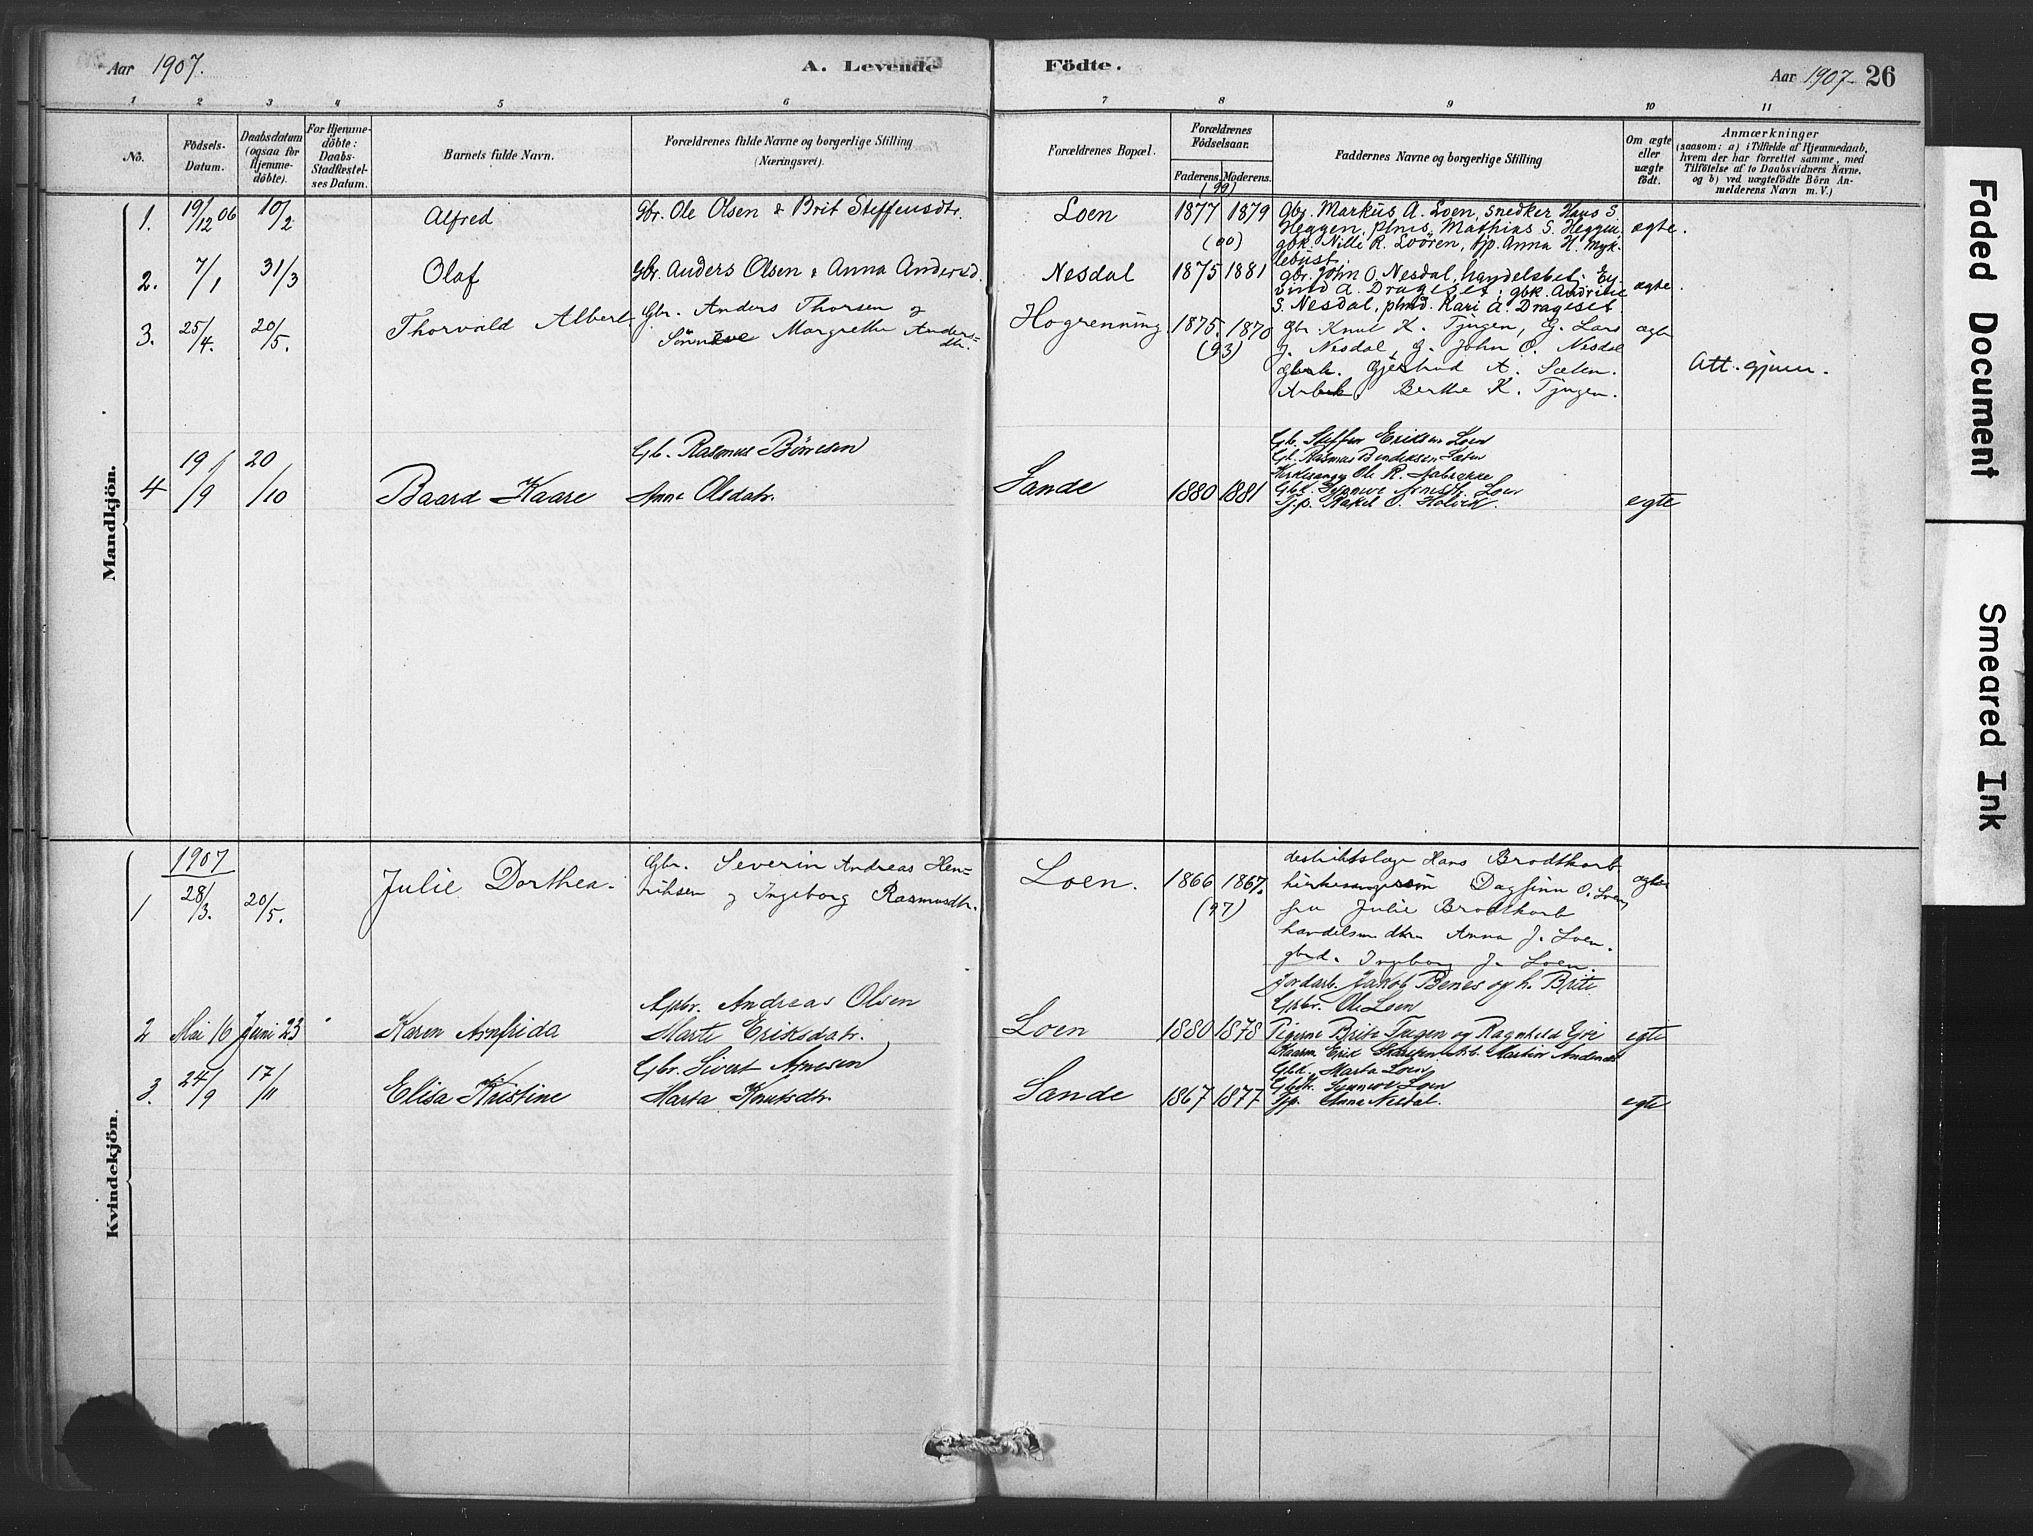 Aar 1907.
A. Levende Födte.
Aar 1907 26
1 2 3 4 5 6 7 8 9 10 11
No.
Födsels-
Datum.
Daabsdatum
(ogsaa for
Hjemme-
döbte).
For Hjemme-
döbte:
Daabs-
Stadfæstel-
ses Datum.
Barnets fulde Navn.
Forældrenes fulde Navne og borgerlige Stilling
(Næringsvei).
Forældrenes Bopæl.
Forældrenes
Födselsaar.
Faderens. Moderens.
Faddernes Navne og borgerlige Stilling
Om ægte
eller
uægte
födt.
Anmærkninger
(saasom: a) i Tilfælde af Hjemmedaab,
hvem der har forrettet samme, med
Tilföielse af to Daabsvidners Navne,
og b) ved uægtefödte Börn An-
melderens Navn m. V.)
Mandkjön.
1. 19/12 06 10/2 Alfred
Gbr. Ole Olsen & Brit Steffensdtr.
Loen
(99)
1877 1879
Gbr. Markus A. Loen, snedker Hans S.
Heggen, plms. Mathias S. Heggen,
gbk. Nilli R. Loören, tjp. Anna H. Myk-
lebust.
ægte.
2. 7/1 31/3 Olaf
Gbr. Anders Olsen & Anna Andersd.
Nesdal
(00)
1875 1881
gbr. John O. Nesdal, handelsbet. Ey-
vind A. Drageset, gbk. Andrine
S. Nesdal, plmd. Kari A. Drageset
ægte.
3. 25/4. 20/5. Thorvald Albert
Gbr. Anders Thorsen og
Margrethe Anders-
dtr.
Hogrenning
1875. 1870
(93)
Gbr. Knut K. Tjugen, G. Lars
J. Nesdal, G. John O. Nesdal
Gjertrud A. Sæten.
Berthe K. Tjugen.
ægte
Att. gjum.
4 19/9 20/10 Baard Kaare
Gb. Rasmus Børresen
Anne Olsdatr.
Sande
1880 1881
Gb. Steffen Eriksen Loen
Gb. Rasmus Bendiksen Sæten
Kirkesanger Ole R. Aabrekke
Gbd. Synneve Arnesdtr. Loen
Tj.p. Rakel O. Holvik.
egte
Kvindekjön.
1907
1 28/3. 20/5. Julie Dorthea.
Gbr. Severin Andreas Hen-
riksen og Ingeborg Rasmusdtr.
Loen.
1866 1867.
(97)
destriktslæge Hans Brodtkorb
kirkesanger Dagfinn O. Loen,
fru Julie Brodtkorb
Anna J. Loen.
gbrd. Ingeborg J. Loen.
ægte
2 Mai 16 Juni 23 Karen Arnfrida
Gbr. Andreas Olsen
Marte Eriksdatr.
Loen
1880 1878
Jordarb. Jakob Benes og h. Brite
Gbr. Ole Loen
Pigerne Brite Tjugen og Ragnhild
egte
3. 24/9 17/11 Elisa Kristine
Gbr. Sivert Arnesen
Marta Knutsdtr.
Sande
1867 1877
Erik Martin Andenes
Gbd. Marta Loen
Gbdtr. Synneve Loen
Tjp. Anna Nesdal.
egte
Faded Document
Smeared Ink